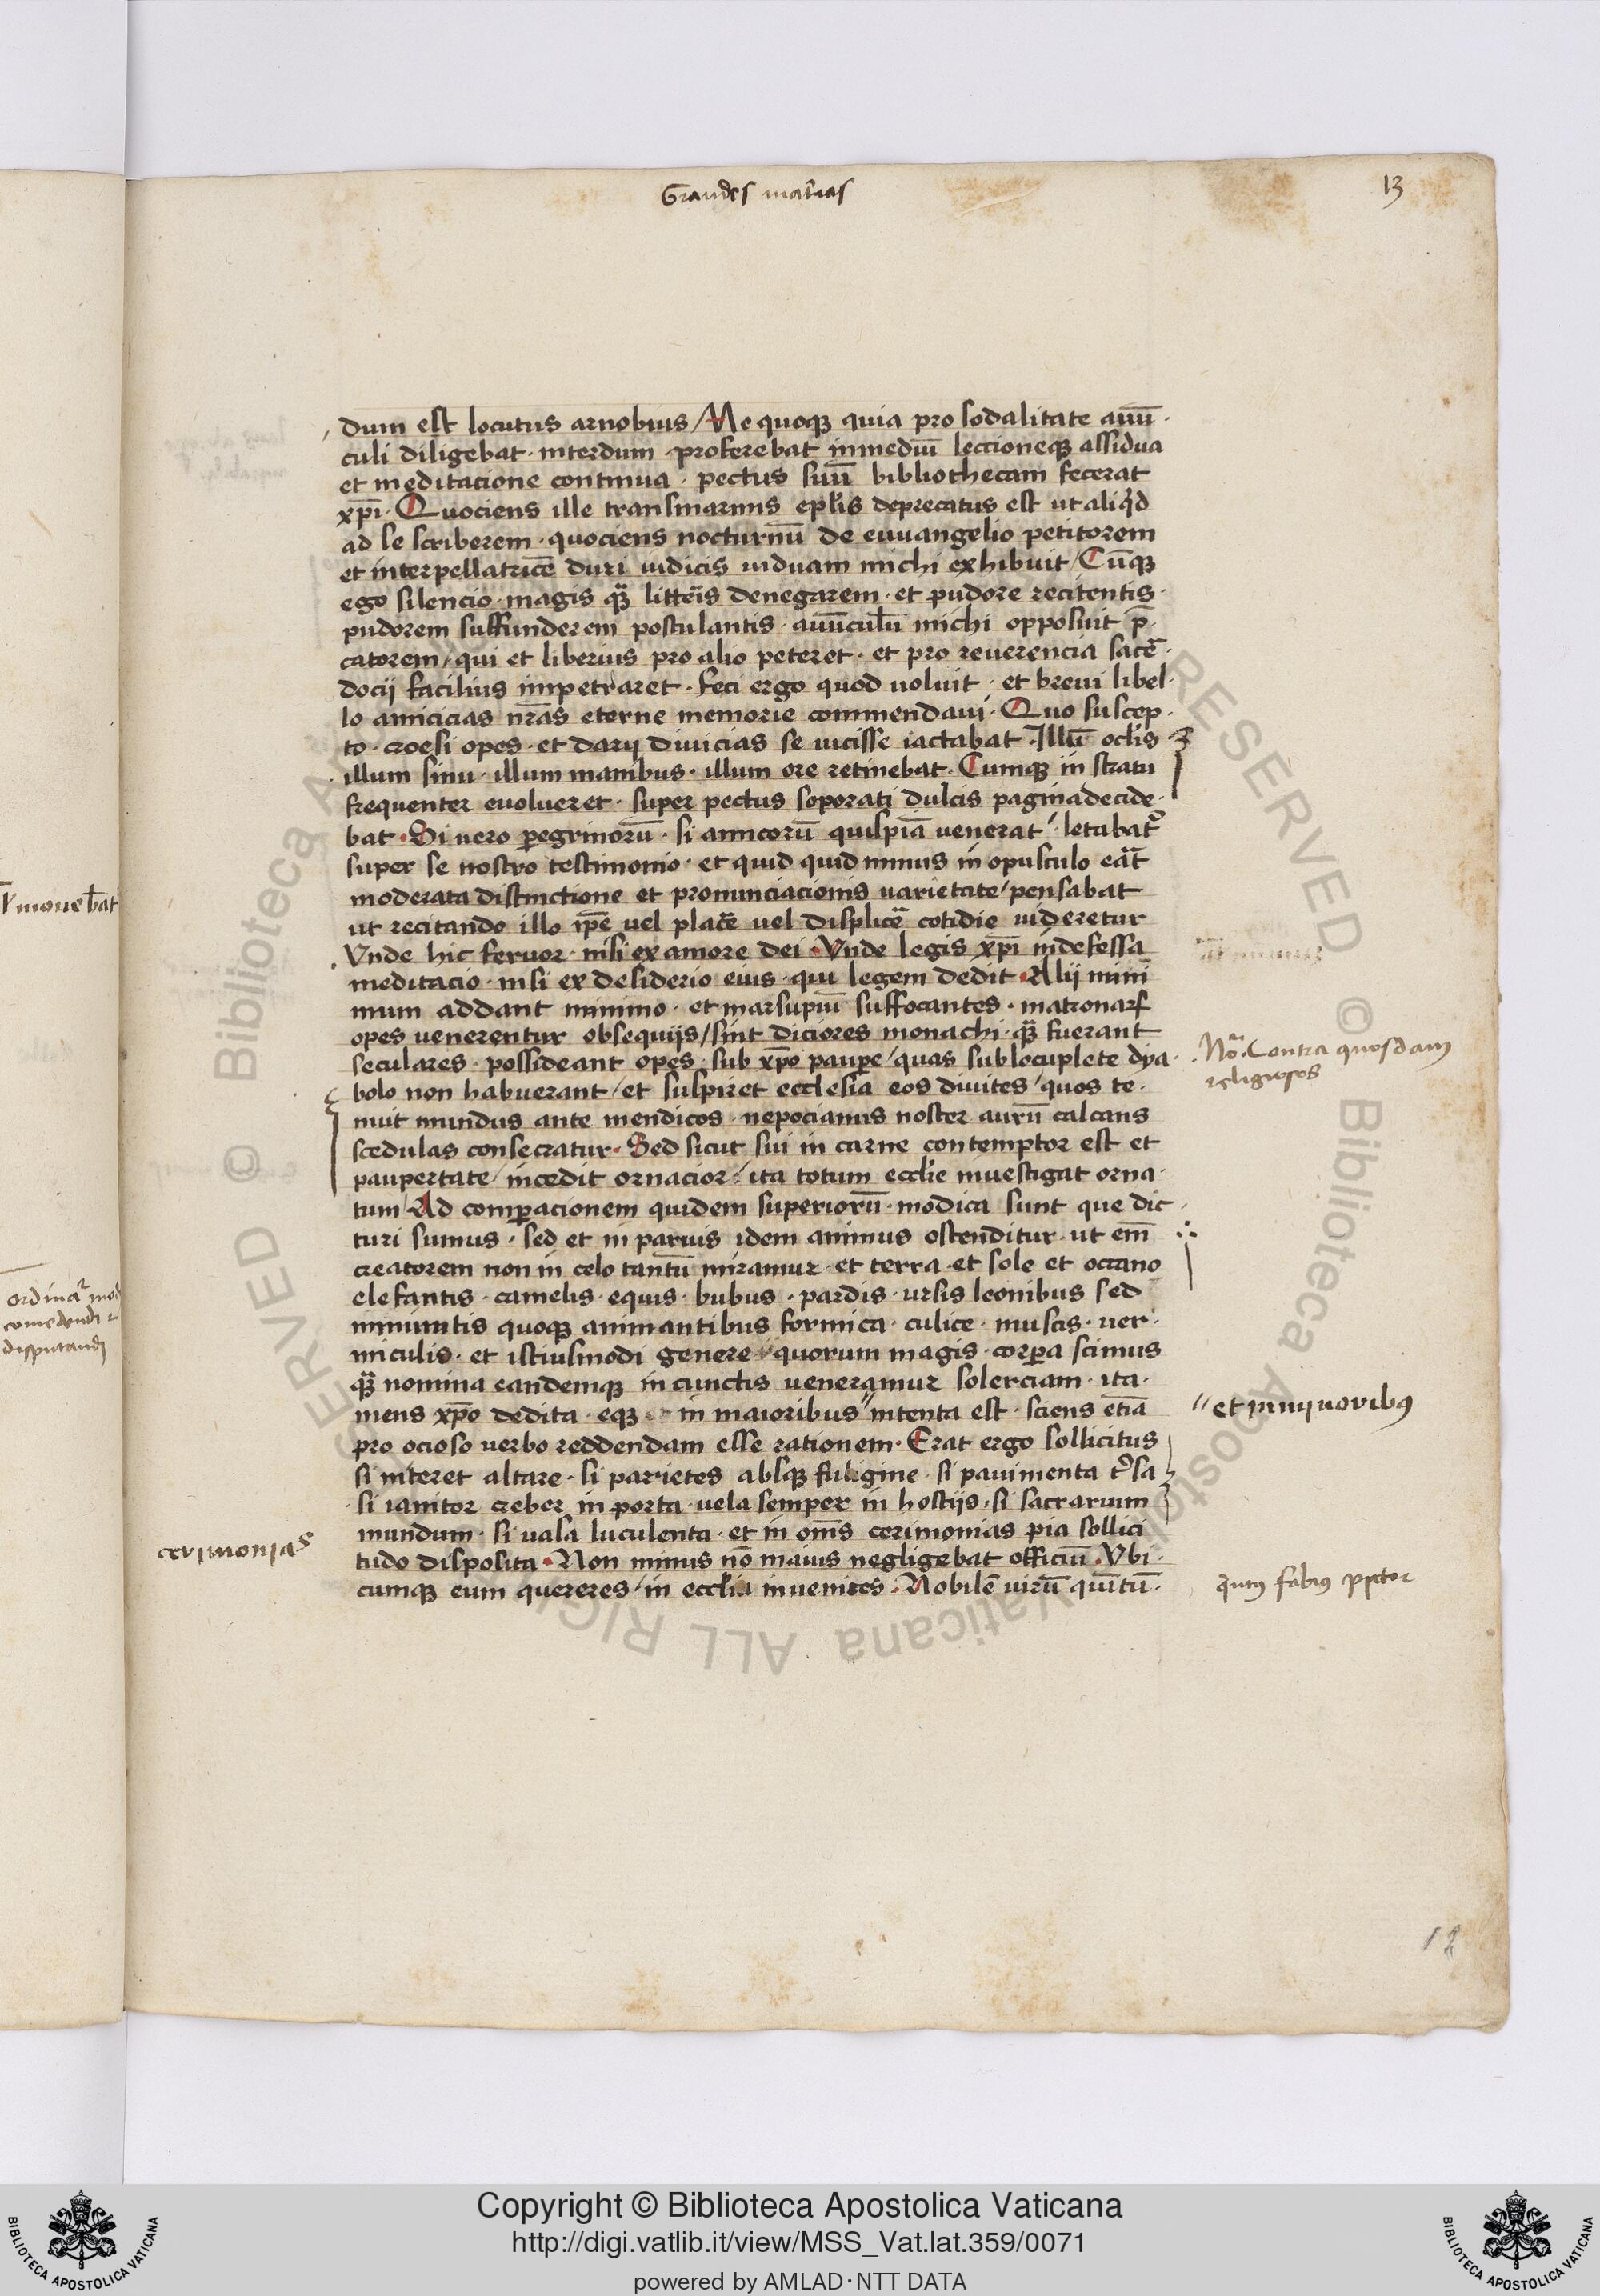 Grandes materias
13
dum est locutus arnobius / Me quoqꝫ quia pro sodalitate auū·
culi diligebat · interdum · proferebat inmediū leccioneqꝫ assidua
et meditacione continua · pectus suū bibliothecam fecerat
xp̄i · Quociens ille transmarinis epl̄is deprecatus est ut aliq̇d
ad se scriberem · quociens nocturnū de euuangelio petitorem
et interpellatricē duri iudicis uiduam michi exhibuit / Cūqꝫ
ego silencio · magis qᷓ litt̄is denegarem · et pudore reticentis ·
pudorem suffunderem postulantis · auūcul̄u michi opposuit p̄·
catorem / qui et liberius pro alio peteret · et pro reuerencia sac̄e·
docij facilius impetraret · feci ergo quod uoluit · et breui libel·
lo amicicias nr̄as eterne memorie commendaui · Quo suscep·
to · croesi opes · et darij diuicias se uicisse iactabat · Illū ocl̄is
illum sinu · illum manibus · illum ore retinebat · Cumqꝫ in stratu
frequenter euolueret · super pectus soporati dulcis pagina decide·
bat · Si uero p̲egrinorū · si amicorū quispiā uenerat · letabat᷑
super se nostro testimonio · et quid quid minus in opusculo eāt
moderata distinctione et pronunciacionis uarietate / pensabat
ut recitando illo ip̄e uel plac̄e uel displic̄e cotidie uideretur
Vnde hic feruor · nisi ex amore dei · Vnde legis xp̄i indefessa
meditacio · nisi ex desiderio eius · qui legem dedit · Alij mini
mum addant minimo · et marsupiū suffocantes · matronarꝝ
opes uenerentur obsequijs / sint diciores monachi · qᷓ fuerant
seculares · possideant opes · sub xp̄o paup̲e / quas sub locuplete dya·
bolo non habuerant / et suspiret ecclesia eos diuites / quos te·
nuit mundus ante mendicos · nepocianus noster aurū calcans
scedulas consecratur · Sed sicut sui in carne contemptor est et
paupertate / incedit ornacior · ita totum eccl̄ie inuestigat orna·
tum Ad comp̲acionem quidem superiorū · modica sunt que dic
turi sumus · sed et in paruis idem animus ostenditur · ut em̄
creatorem non in celo tantū miramur · et terra · et sole et occano
elefantis · camelis · equis · bubus · pardis · ursis leonibus sed
minuntis quoqꝫ animantibus formica · culice · muscis · uer·
miculis · et istiusmodi genere quorum magis · corp̲a scimus
qᷓ nomina eandemqꝫ in cunctis ueneramur solerciam · ita·
mens xp̄o dedita · eqꝫ in maioribus " intenta est · sciens etiā
pro ocioso uerbo reddendam esse rationem · Erat ergo sollicitus
si niteret altare · si parietes absqꝫ fuligine · si pauimenta t᷑sa
si ianitor creber in porta · uela semper in hostijs · si sacrarium
mundum · si uasa luculenta · et in om̄s cerimonias pia sollici
tudo disposita · Non minus nō maius negligebat officiū · Vbi·
cumqꝫ eum quereres / in eccl̄ia inuenires · Nobilē uirū quītū·
Noᷓ · Contra quosdam
religiosos
" et minoribus
cerimonias
q̇ntus fabius pictor
12
mouebat
ordinaᷓ
comedendi
disputandi
Copyright © Biblioteca Apostolica Vaticana
http://digi.vatlib.it/view/MSS_Vat.lat.359/0071
powered by AMLAD·NTT DATA
BIBLIOTECA APOSTOLICA VATICANA
BIBLIOTECA APOSTOLICA VATICANA
© Biblioteca Apostolica Vaticana ALL RIGHTS RESERVED